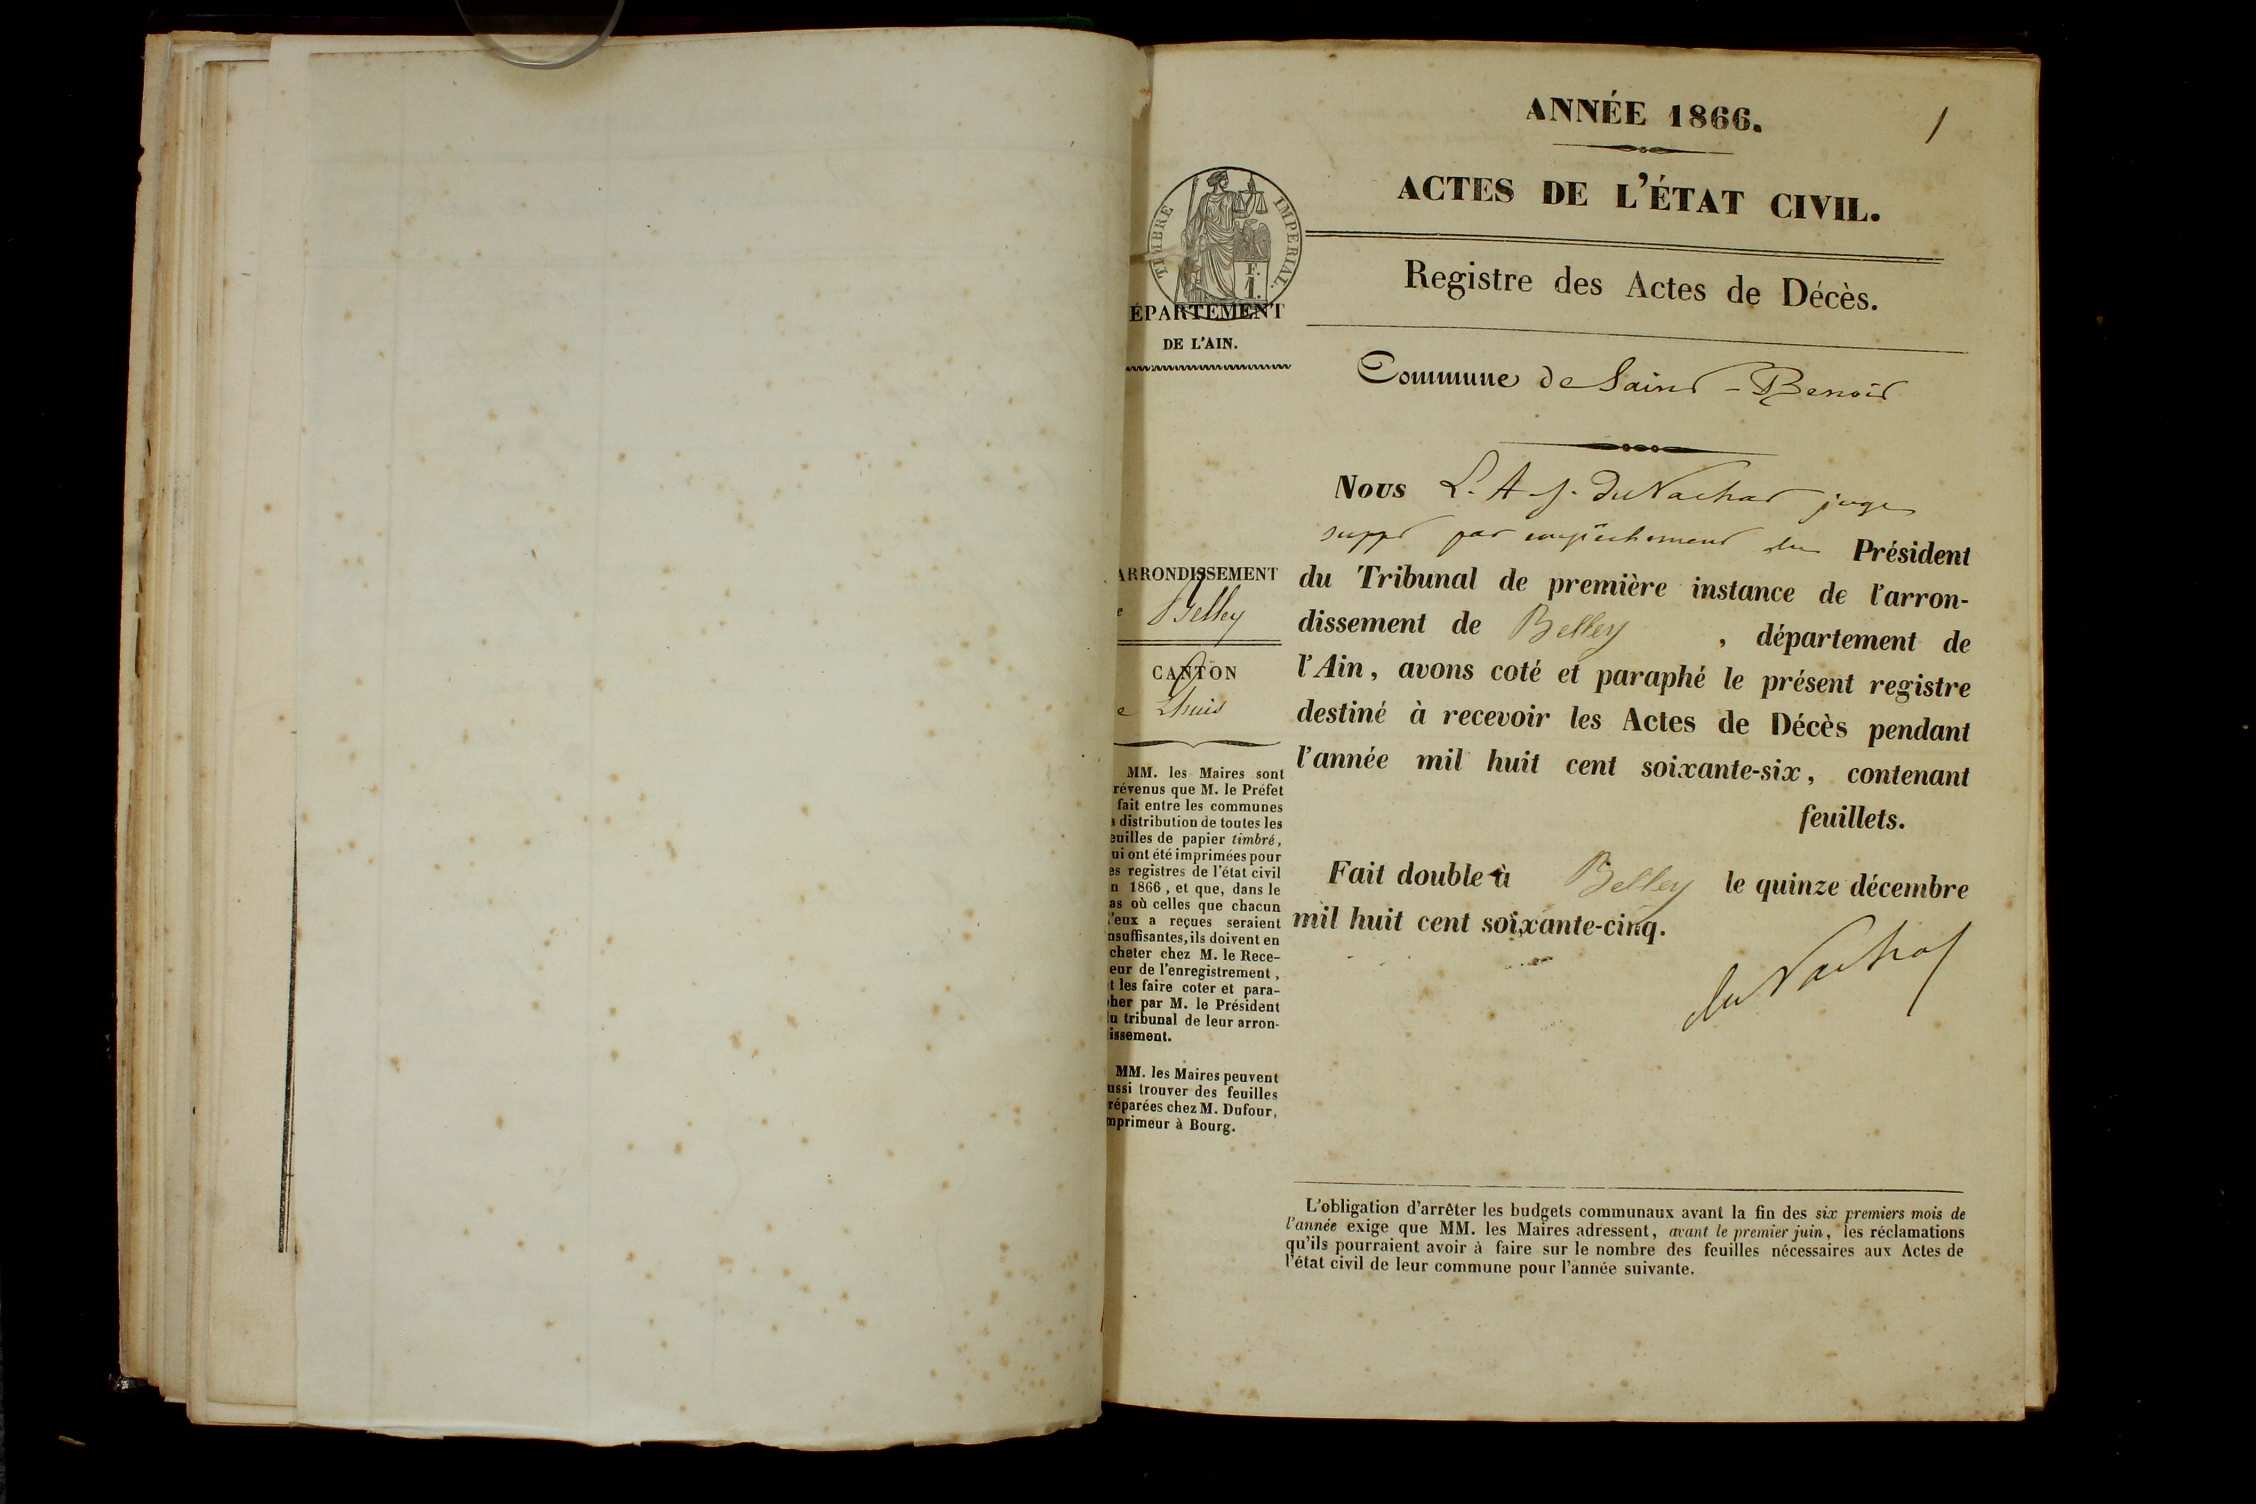 ANNÉE 1866.
1
ACTES DE L'ÉTAT CIVIL.
TIMBRE IMPERIAL.
F.
1.
Registre des Actes de Décès.
ÉPARTEMENT
DE L'AIN.
Commune de Saint-Benoit
Nous L. A. J. du Nachat juge
suppt par empêchement du Président
du Tribunal de première instance de l'arron-
dissement de Belley , département de
l'Ain, avons coté et paraphé le présent registre
destiné à recevoir les Actes de Décès pendant
l'année mil huit cent soixante-six, contenant
feuillets.
Fait double à Belley le quinze décembre
mil huit cent soixante-cinq.
du Nachat
ARRONDISSEMENT
e Belley
CANTON
e Lhuis
MM. les Maires sont
révenus que M. le Préfet
fait entre les communes
a distribution de toutes les
euilles de papier timbré,
ui ont été imprimées pour
es registres de l'état civil
n 1866, et que, dans le
as où celles que chacun
'eux a reçues seraient
nsuffisantes, ils doivent en
cheter chez M. le Rece-
eur de l'enregistrement,
t les faire coter et para-
her par M. le Président
u tribunal de leur arron-
issement.
MM. les Maires peuvent
ussi trouver des feuilles
réparées chez M. Dufour,
mprimeur à Bourg.
L'obligation d'arrêter les budgets communaux avant la fin des six premiers mois de
l'année exige que MM. les Maires adressent, avant le premier juin, les réclamations
qu'ils pourraient avoir à faire sur le nombre des feuilles nécessaires aux Actes de
l'état civil de leur commune pour l'année suivante.